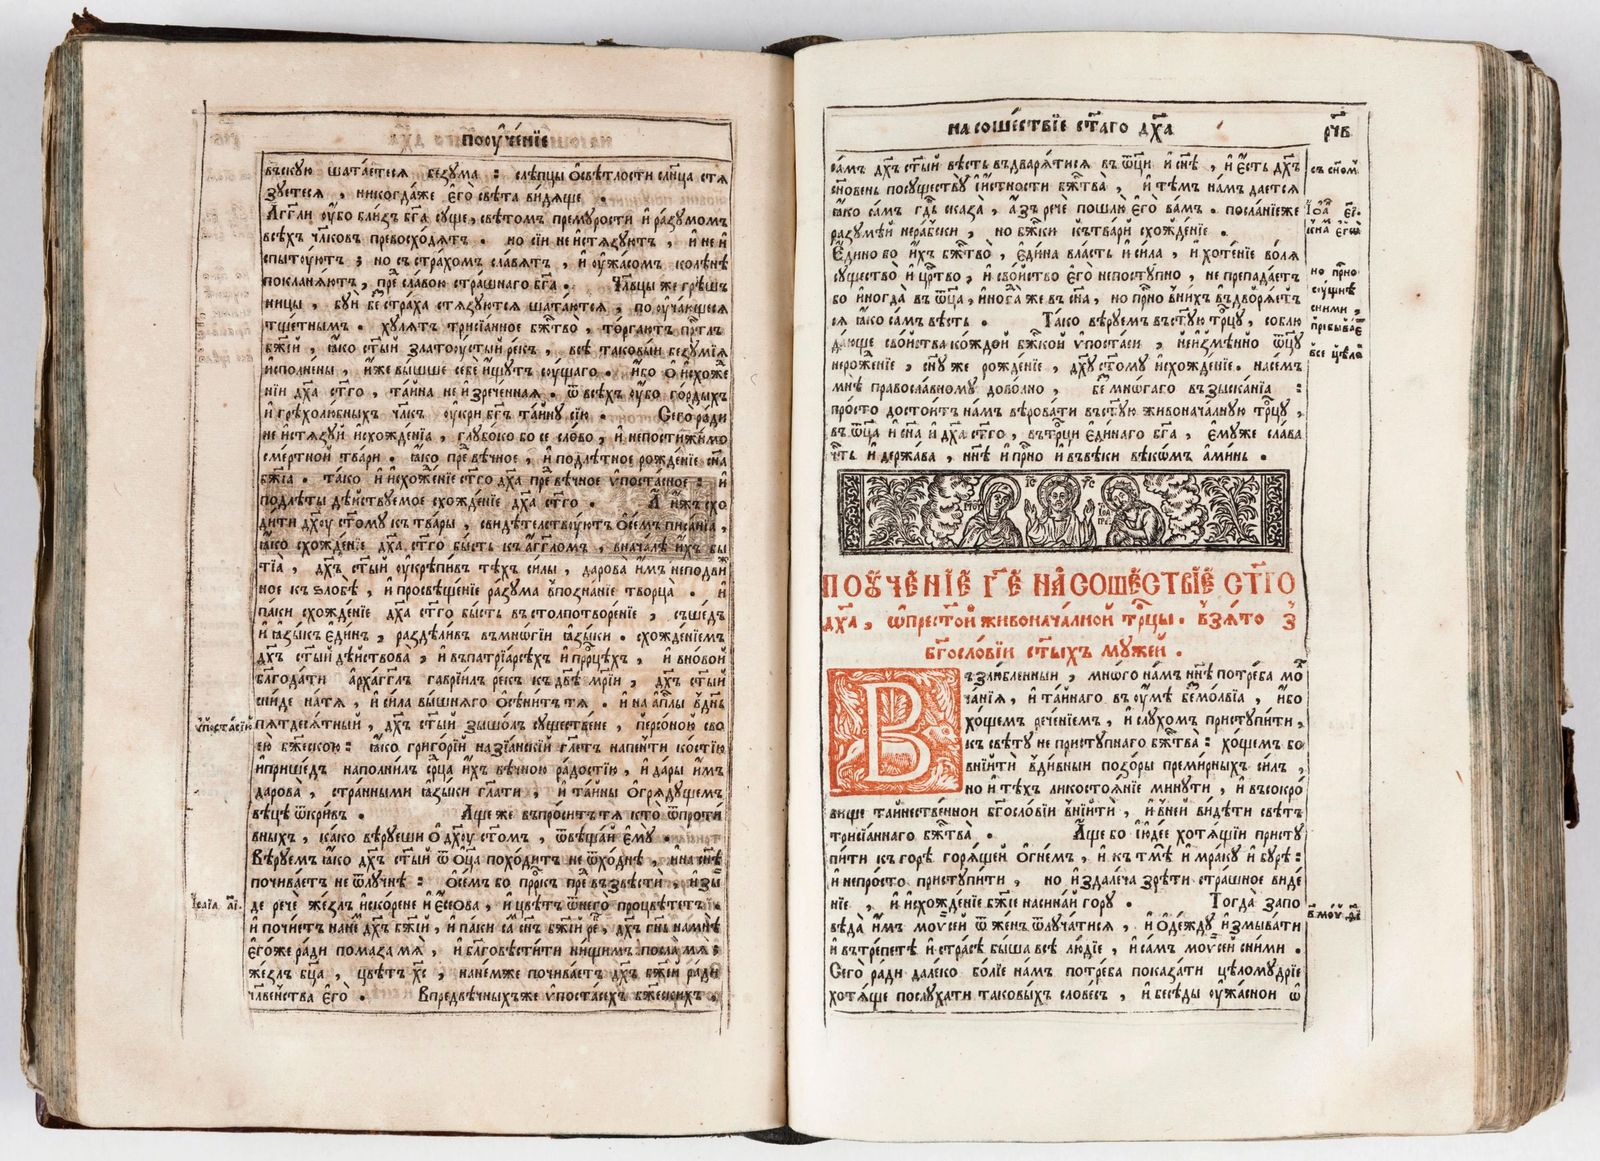 поꙋче́нїе
въскую шата́етеся безума : слѣпцы ѡ҆свѣтлости сл҃нца стя
зуетеся , никогда́же є҆го̀ свѣта ви́дяще .
А҆гг҃ли ѹ҆́бо бли́зъ бг҃а суще , свѣтомъ премурости и҆ ра́зумомъ
всѣхъ чл҃ковъ превосхо́дятъ . но сїи не и҆стязуютъ , и҆ не и҆
спытуютъ ; но съ стра́хомъ сла́вятъ , и҆ ѹ҆́жасомъ колѣнѣ
покланя́ютъ , пре сла́вою стра́шнаго бг҃а . Чл҃вцы же грѣш
ницы , буи бес̾тра́ха стязуются шата́ются , поѹча́ющеся
тщетнымъ . хуля́тъ трисїа́нное бж҃тво̀ , то́ргаютъ прⷭ҇тлъ
бж҃їй , ꙗ҆́ко ст҃ый златоу́стый ре́къ , всѣ таковы́и безумїя
и҆спо́лнены , и҆́же вышше себѐ и҆щутъ сѹщаго . и҆́бо ѡ҆ и҆схоже́
нїи дх҃а ст҃го , та́йна не и҆зрече́нная . ѿ всѣхъ ѹ҆́бо го́рдыхъ
и҆ грѣхолюбныхъ чл҃къ сукри бг҃ъ та́йну сїю . Сего̀ ра́ди
не и҆стязуй и҆схожде́нїя , глубо́ко бо се сло́во , и҆ непостижи́мо
сме́ртной твари . ꙗ҆́ко превѣ́чное , и҆ подлѣ́тное рожде́нїе сн҃а
бж҃їа . та́ко и҆ и҆схоже́нїе ст҃го дх҃а превѣ́чное ѵ҆поста́сное : и҆
подлѣ́ты дѣ́йствуемое схожде́нїе дх҃а ст҃го . А҆ и҆́жъ схо
ди́ти дх҃оу ст҃ому съ тва́ры , свидѣ́телствуютъ ѡ҆се́мъ писа́нїа ,
ꙗ҆́ко схожде́нїе дх҃а ст҃го бы́сть къ а҆́гг҃ломъ , внача́лѣ и҆́хъ бы
тїа , дх҃ъ ст҃ый ѹкрѣпи́въ тѣ́хъ силы , дарова̀ и҆́мъ неподви́ж
ное къ ѕло́бѣ , и҆ просвѣще́нїе ра́зума впозна́нїе творца̀ . и҆
па́ки схожде́нїе дх҃а ст҃го бы́сть въ столпотворе́нїе , съше́дъ
и҆ ꙗ҆зы́къ є҆ди́нъ , раздѣли́въ вмно́гїи ꙗ҆зы́ки . схожде́нїемъ
дх҃ъ ст҃ый дѣ́йствова , и҆ въ патрїа́рсѣхъ и҆ прⷪ҇рцѣхъ , и҆ вновой
блгода́ти а҆рха́гг҃лъ гаврїи́лъ ре́къ къ дв҃ѣ мр҃їи , дх҃ъ ст҃ый
сни́де на́ тя , и҆ сила вы́шняго ѡ҆сѣни́тъ тя . и҆ на а҆пⷭ҇лы в̾ де́нь
ѵ҆поста́сїю
пятдеся́тный , дх҃ъ ст҃ый зышо́лъ суще́ствене , персо́ною сво
е́ю бж҃ескою : ꙗ҆́ко григо́рїй назїа́нскїй гл҃етъ на пе́нтикостїю
и҆ прише́дъ напо́лнилъ ср҃ца и҆́хъ вѣ́чною ра́достїю , и҆ да́ры и҆́мъ
дарова , стра́нными ꙗ҆зы́ки гл҃ати , и҆ та́йны ѡ҆ гряду́щемъ
вѣ́цѣ ѿкри́въ . А҆́ще же въпро́ситъ тя кто̀ ѿпроти́
вныхъ , ка́ко вѣ́руеши ѡ҆ дх҃оу ст҃омъ , ѿвѣща́й є҆му̀ .
Вѣ́руемъ ꙗ҆́ко дх҃ъ ст҃ый ѿ ѻ҆ц҃а похо́дитъ не ѿхо́днѣ , и҆ на сн҃ѣ
почива́етъ не ѿлу́чнѣ : ѡ҆се́мъ бо прⷪ҇ркъ пре възвѣсти , и҆зы́
І҆са́їа . а҃і .
де речѐ же́злъ и҆скорене и҆ е҆ссо́ва , и҆ цвѣ́тъ ѿ него̀ процвѣте́тъ
и҆ почи́етъ на не́м дх҃ъ бж҃їй , и҆ па́ки са́ сн҃ъ бж҃їй ре́ , дх҃ъ гн҃ь на мнѣ̀
є҆го́же ра́ди пома́за мя̀ , и҆ блг҃овѣсти́ти ни́щимъ посла́ мя̀
же́злъ бц҃а , цвѣ́тъ хс҃ , на не́мже почива́етъ дх҃ъ бж҃ей ра́ди
чл҃вѣ́нства є҆го̀ . Впредвѣ́чныхъже ѵ҆поста́сехъ бж҃ескихъ ,
на соше́ствїе ст҃а́го дх҃а
рч҃в
са́мъ дх҃ъ ст҃ый вѣ́сть въдваря́тися въ ѿц҃и и҆ сн҃ѣ , и҆ є҆́сть дх҃ъ
съ сн҃ом
сн҃овень по существу̀ и҆́стности бж҃тва̀ , и҆ тѣ́мъ на́мъ дае́тся
ꙗ҆́ко са́мъ гд҃ь сказа̀ , а҆́зъ речѐ пошлю̀ є҆го̀ ва́мъ . посла́нїеже
разумѣ́й нера́бски , но бж҃ки къ тва́ри схожде́нїе .
Є҆ди́но бо и҆́хъ бж҃тво̀ , є҆ди́на вла́сть и҆ сила , и҆ хотѣ́нїе воля
существо̀ и҆ црⷭ҇тво , и҆ сво́йство є҆го̀ непосту́пно , не препада́етъ
но при́сно
бо и҆ногда̀ въ ѿц҃а , и҆ногда̀ же въ сн҃а , но при́сно в̾ни́хъ въдворя́ет
ся ꙗ҆́ко са́мъ вѣ́сть . Та́ко вѣ́руемъ въ ст҃ую трⷪ҇цу , соблю
сни́ми ,
да́юще сво́йства ко́ждой бж҃кой ѵ҆поста́си , неи҆змѣ́нно ѿц҃у
все́ цѣ́ло
нерожде́нїе , сн҃у же рожде́нїе , дх҃у ст҃ому и҆схожде́нїе . на се́мъ
мнѣ̀ правосла́вному дово́лно , без̾ мно́гаго възыска́нїя :
про́сто досто́итъ на́мъ вѣ́ровати въ ст҃ую живонача́лную трⷪ҇цу ,
въ ѿц҃а и҆ сн҃а и҆ дх҃а ст҃го , въ трⷪ҇ци є҆ди́наго бг҃а , є҆му́же сла́ва
че́сть и҆ держа́ва , нн҃ѣ и҆ при́сно и҆ въ вѣ́ки вѣко́мъ а҆ми́нь .
І҆С ХС
поѹче́нїе г҃е на соше́ствїе ст҃го
дх҃а , ѡ҆ прест҃о́й живонача́лной трⷪ҇цы . взя́то з̾
бг҃осло́вїи ст҃ыхъ муже́й .
Възлю́бленныи , мно́го на́мъ нн҃ѣ потре́ба мо
лча́нїя , и҆ та́йнаго въ ѹ҆мѣ̀ безмо́лвїа , и҆́бо
хо́щемъ рече́нїемъ , и҆ слу́хомъ приступи́ти ,
къ свѣ́ту не присту́пнаго бж҃тва̀ : хо́щемъ бо
вни́йти в̾ди́вныи позо́ры преми́рныхъ си́лъ ,
но и҆ тѣ́хъ ликостоя́нїе мину́ти , и҆ въ сокро́
вище та́йнственнои бг҃осло́вїи вни́йти , и҆ вне́й ви́дѣти свѣ́тъ
трисїа́ннаго бж҃тва̀ . А҆́ще бо і҆юде́е хотя́щїи присту
пи́ти къ горѣ̀ горя́щей ѻ҆гне́мъ , и҆ къ тмѣ̀ и҆ мра́ку и҆ бу́рѣ :
и҆ непро́сто приступи́ти , но и҆здале́ча зрѣ́ти стра́шное видѣ́
нїе , и҆ и҆схожде́нїе бж҃їе на сина́й гору . Тогда̀ запо
вѣ́да и҆́мъ моѵсе́й ѿ же́нъ ѿлуча́тися , и҆ ѻ҆де́жду и҆змыва́ти
и҆ въ тре́петѣ и҆ стра́сѣ бы́ша всѣ̀ лю́дїе , и҆ са́мъ моѵсе́й сни́ми .
Сего̀ ра́ди далеко бо́лїе на́мъ потре́ба показа́ти цѣлому́дрїе
хотя́ще послу́хати таковы́хъ слове́съ , и҆ бесѣ́ды ѹ҆жа́снои ѡ҆